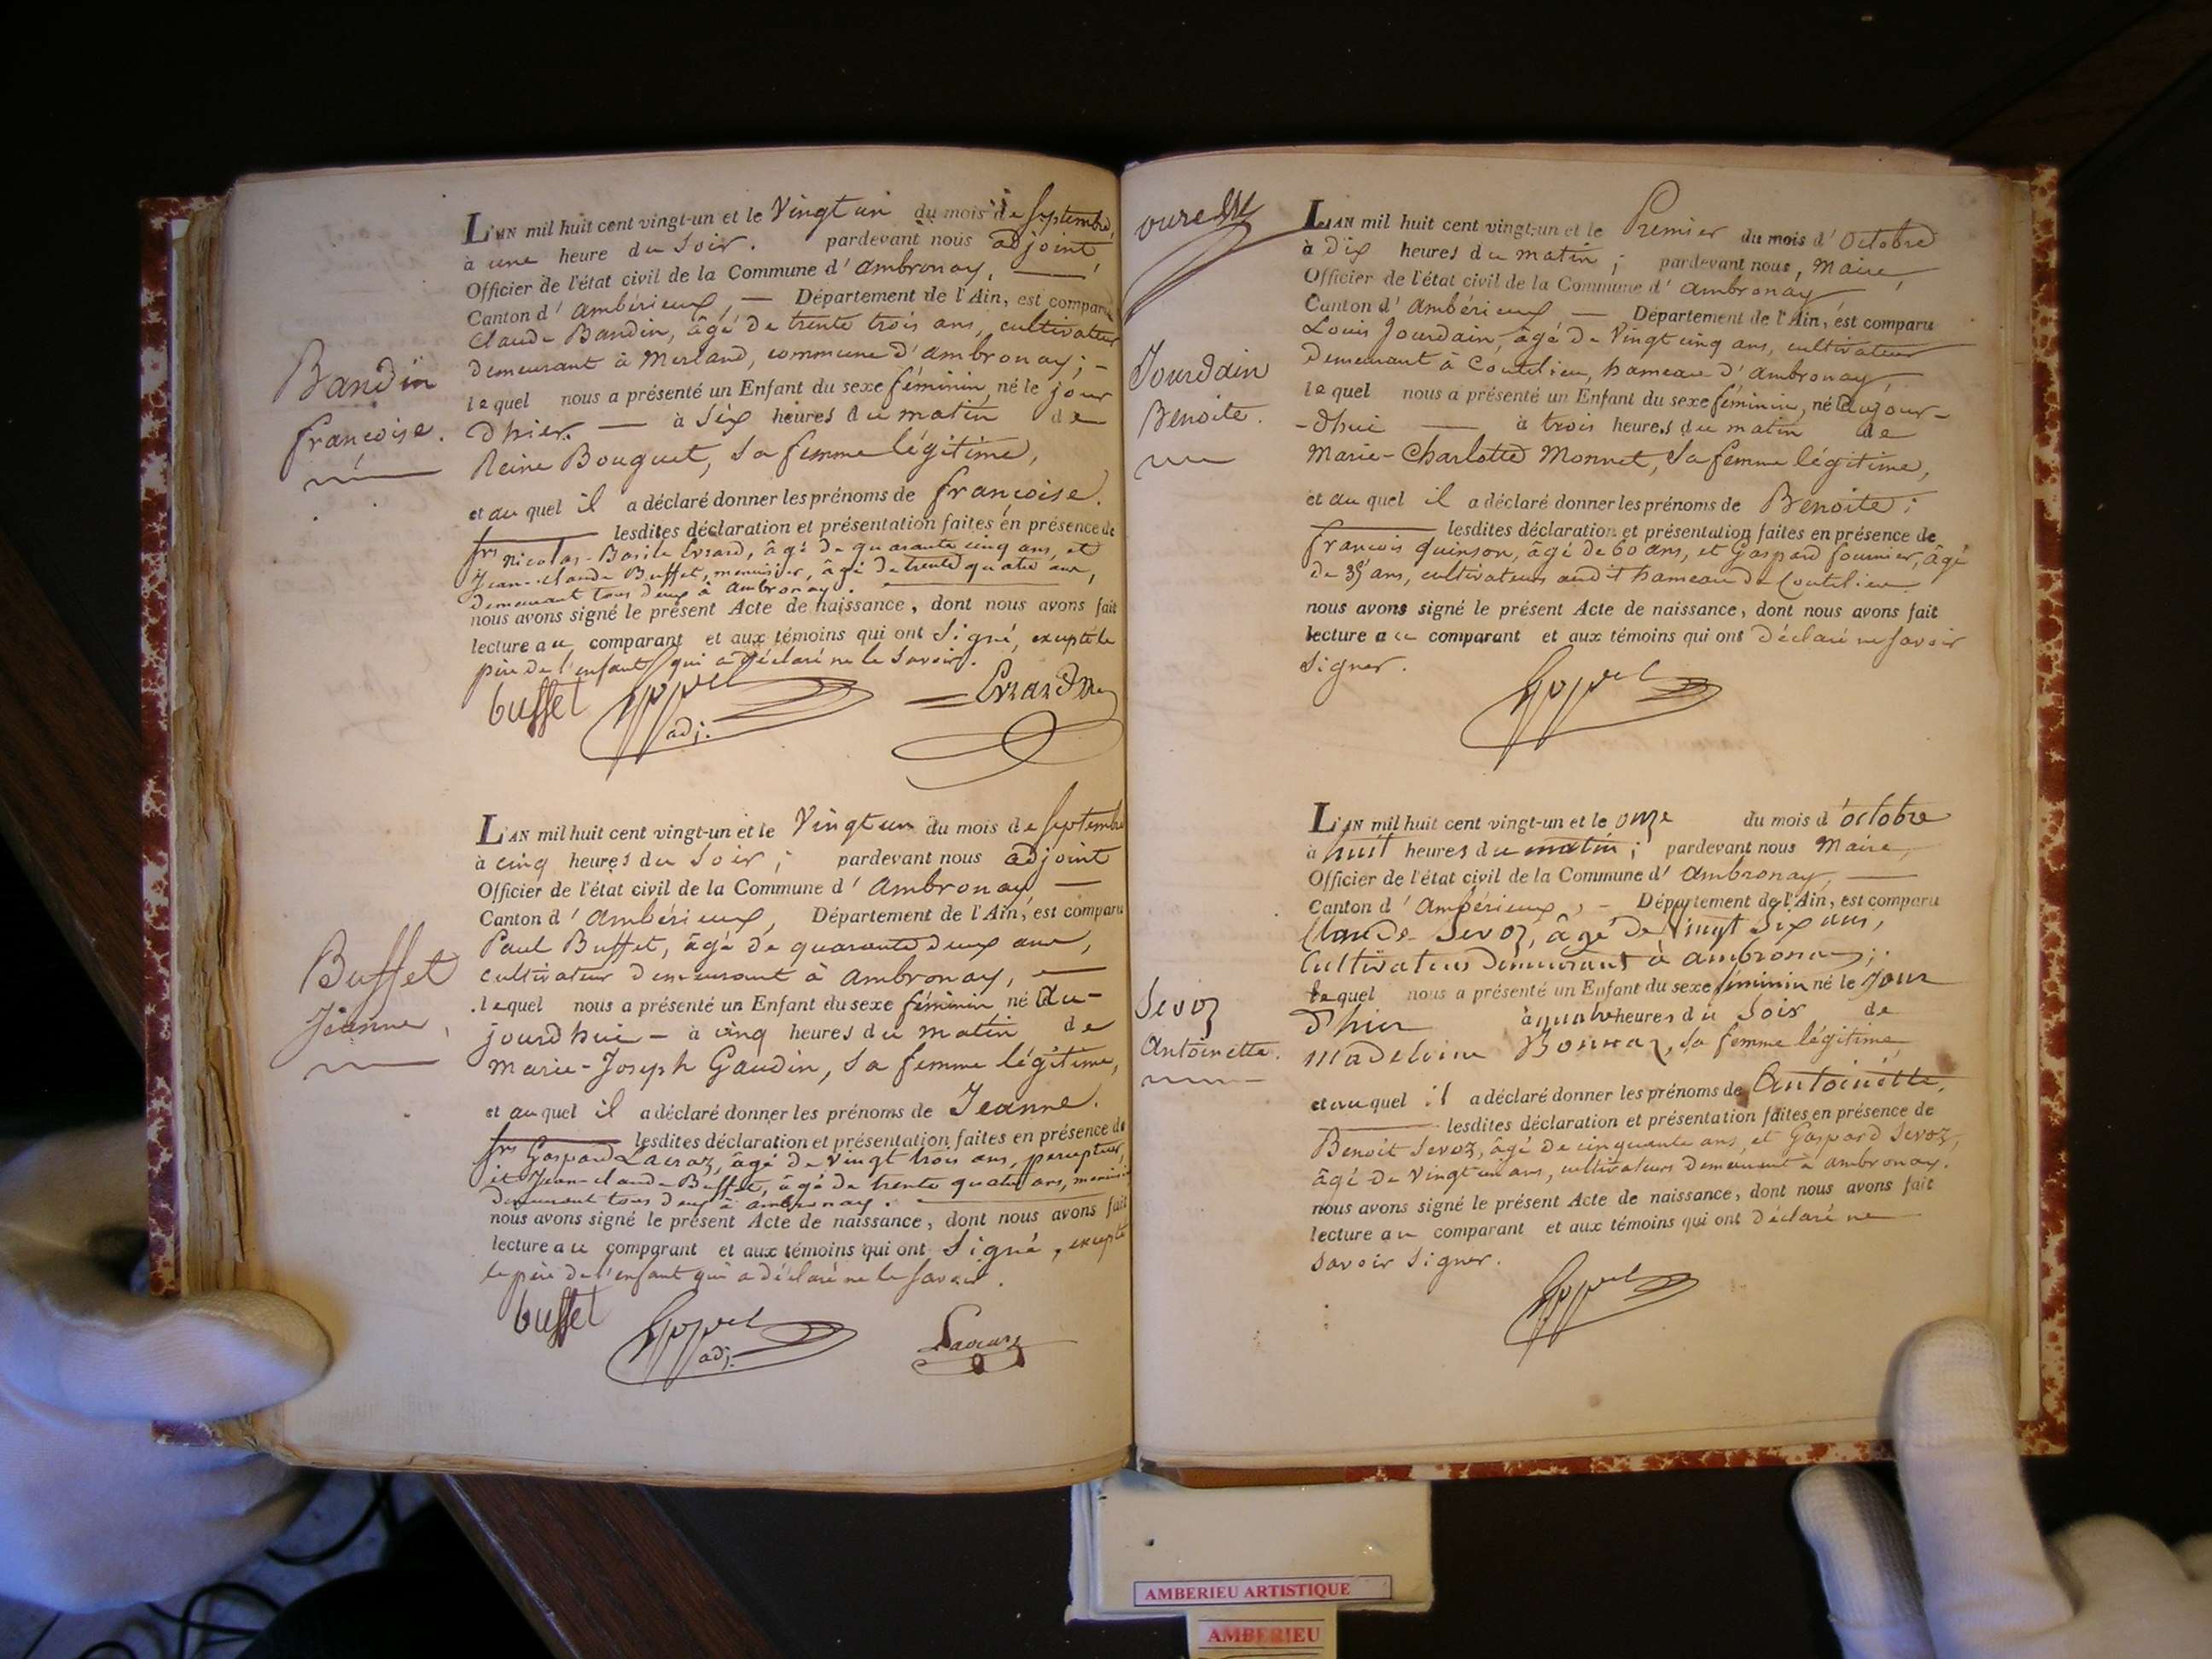 Bandin
françoise.
L'AN mil huit cent vingt-un et le Vingt un du mois de Septembre,
à une heure du Soir. pardevant nous adjoint,
Officier de l'état civil de la Commune d'ambronay,
Canton d'ambérieux, — Département de l'Ain, est comparu
Claude Bandin, âgé de trente trois ans, cultivateur
demeurant à Merland, commune d'ambronay; -
lequel nous a présenté un Enfant du sexe féminin, né le jour
d'hier. — à Six heures du matin de
Reine Bouquet, Sa femme légitime,
et au quel il a déclaré donner les prénoms de françoise.
lesdites déclaration et présentation faites en présence de
frs Nicolas-Basile Evrard, âgé de quarante cinq ans, et
Jean-claude Buffet, menuisier, âgé de trente quatre ans,
demeurant tous deux à ambronay.
nous avons signé le présent Acte de naissance, dont nous avons fait
lecture au comparant et aux témoins qui ont Signé, excepté le
père de l'enfant qui a déclaré ne le Savoir.
buffet adj. Evrard
Buffet
Jeanne,
L'AN mil huit cent vingt-un et le Vingt un du mois de Septembre
à cinq heures du Soir; pardevant nous adjoint
Officier de l'état civil de la Commune d'Ambronay —
Canton d'ambérieux, Département de l'Ain, est comparu
Paul Buffet, âgé de quarante deux ans,
cultivateur demeurant à ambronay, —
lequel nous a présenté un Enfant du sexe féminin né Au-
jourd'hui — à cinq heures du matin de
Marie-Joseph Gaudin, Sa femme légitime,
et au quel il a déclaré donner les prénoms de Jeanne.
lesdites déclaration et présentation faites en présence de
frs Gaspard Lacraz, âgé de Vingt trois ans, percepteur,
et Jean-claude Buffet, âgé de trente quatre ans, menuisier
demeurant tous deux à ambronay.
nous avons signé le présent Acte de naissance, dont nous avons fait
lecture au comparant et aux témoins qui ont Signé, excepté
le père de l'enfant qui a déclaré ne le Savoir.
buffet adj.
Jourdain
Benoite.
L'AN mil huit cent vingt-un et le Premier du mois d'Octobre
à dix heures du matin; pardevant nous, Maire,
Officier de l'état civil de la Commune d'ambronay
Canton d'ambérieux — Département de l'Ain, est comparu
Louis Jourdain, âgé de Vingt cinq ans, cultivateur
demeurant à Coutelieu, hameau d'ambronay,
lequel nous a présenté un Enfant du sexe féminin, né Aujour-
-dhui — à trois heures du matin de
Marie-Charlotte Monnet, Sa femme légitime,
et au quel il a déclaré donner les prénoms de Benoite;
lesdites déclaration et présentation faites en présence de
françois quinson, âgé de 60 ans, et Gaspard fournier, âgé
de 35 ans, cultivateurs audit hameau de Coutelieu
nous avons signé le présent Acte de naissance, dont nous avons fait
lecture au comparant et aux témoins qui ont déclaré ne Savoir
Signer.
Sevoz
Antoinette.
L'AN mil huit cent vingt-un et le onze du mois d'octobre
à huit heures du matin; pardevant nous Maire,
Officier de l'état civil de la Commune d'ambronay, —
Canton d'Ambérieux, - Département de l'Ain, est comparu
Claude Sevoz, âgé de Vingt Six ans,
Cultivateur demeurant à ambronay;
lequel nous a présenté un Enfant du sexe féminin né le jour
d'hier à quatre heures du Soir de
Madeleine Bonnaz, Sa femme légitime
et au quel il a déclaré donner les prénoms de Antoinette,
lesdites déclaration et présentation faites en présence de
Benoit Sevoz, âgé de cinquante ans, et Gaspard Sevoz,
âgé de Vingt un ans, cultivateurs demeurant à ambronay.
nous avons signé le présent Acte de naissance, dont nous avons fait
lecture au comparant et aux témoins qui ont déclaré ne
Savoir Signer.
AMBERIEU ARTISTIQUE
AMBERIEU